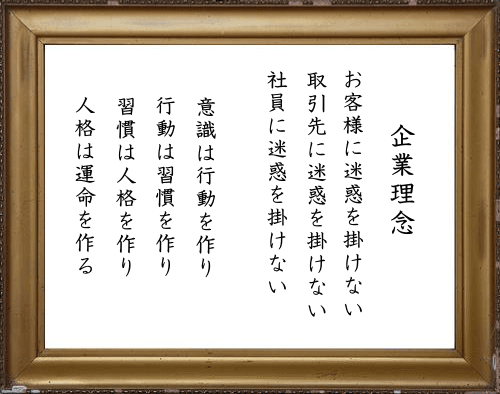 企業理念
お客様に迷惑を掛けない
取引先に迷惑を掛けない
社員に迷惑を掛けない
意識は行動を作り
行動は習慣を作り
習慣は人格を作り
人格は運命を作る